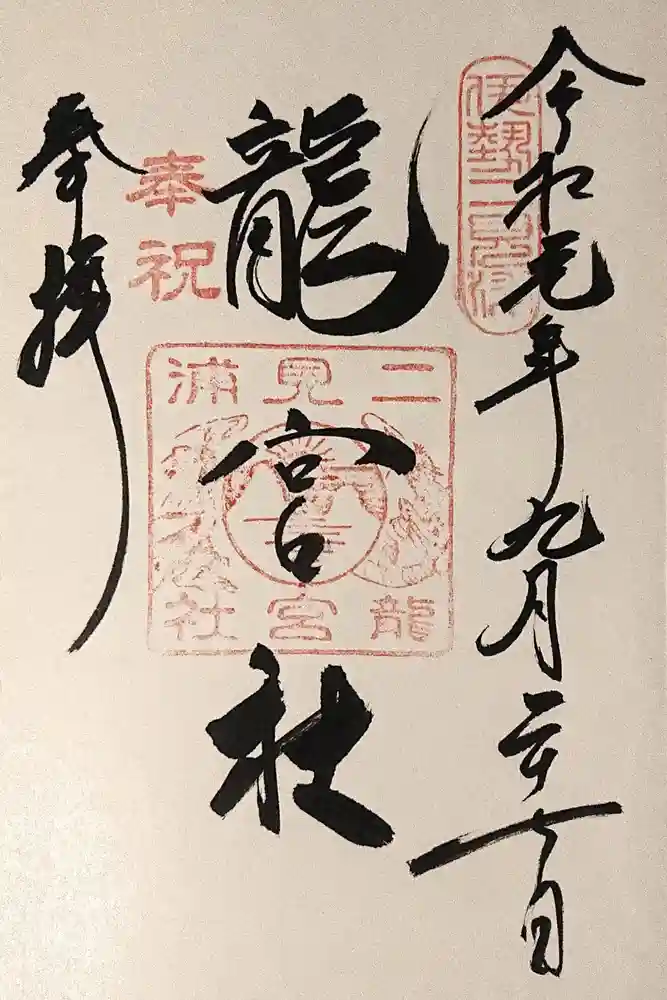 令和元年九月二十七日
伊勢二見浦
龍宮社
二見浦
龍宮社
奉祝
奉拝